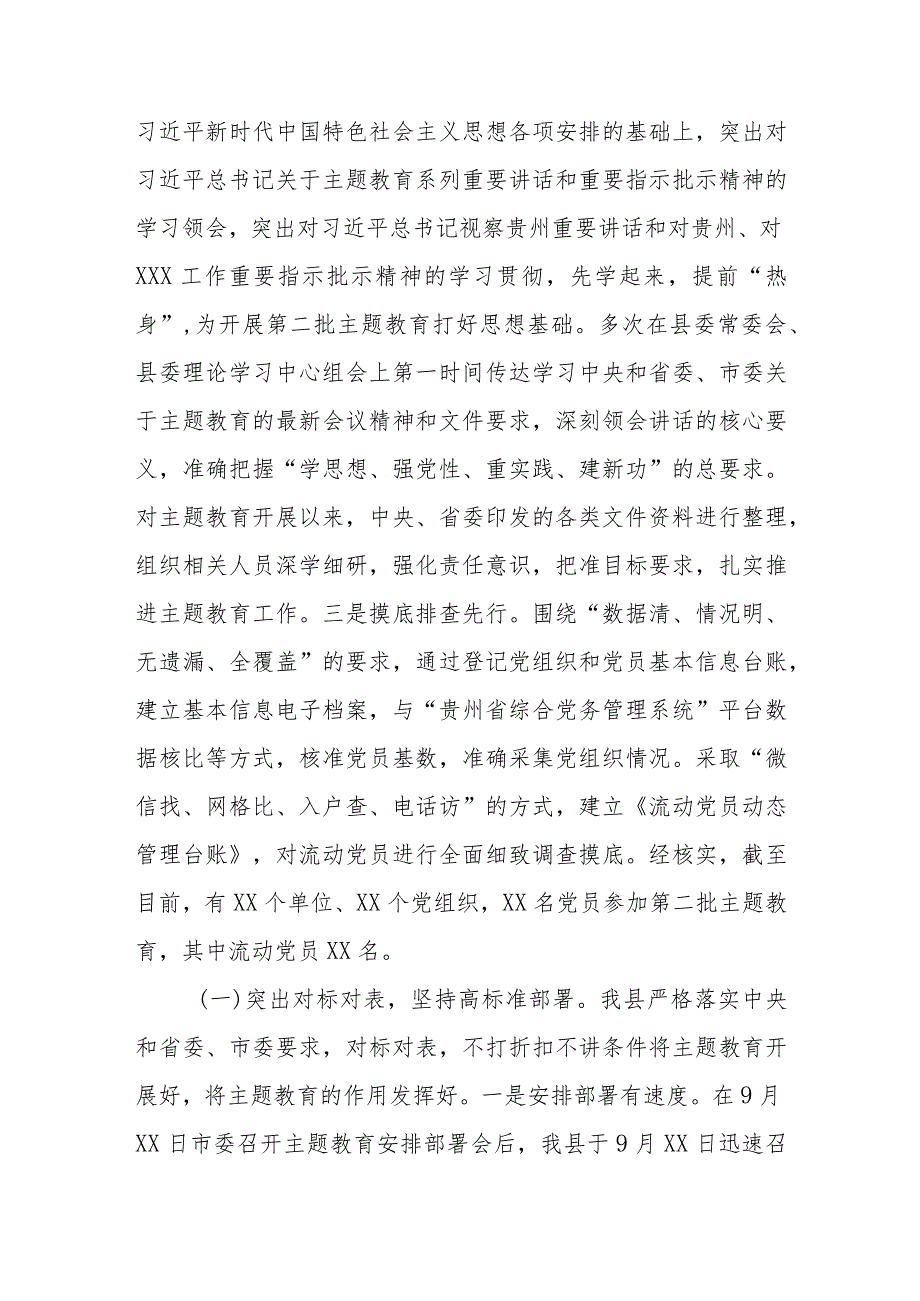 习近平新时代中国特色社会主义思想各项安排的基础上，突出对
习近平总书记关于主题教育系列重要讲话和重要指示批示精神的
学习领会，突出对习近平总书记视察贵州重要讲话和对贵州、对
XXX 工作重要指示批示精神的学习贯彻，先学起来，提前“热
身”,为开展第二批主题教育打好思想基础。多次在县委常委会、
县委理论学习中心组会上第一时间传达学习中央和省委、市委关
于主题教育的最新会议精神和文件要求，深刻领会讲话的核心要
义，准确把握“学思想、强党性、重实践、建新功”的总要求。
对主题教育开展以来，中央、省委印发的各类文件资料进行整理，
组织相关人员深学细研，强化责任意识，把准目标要求，扎实推
进主题教育工作。三是摸底排查先行。围绕“数据清、情况明、
无遗漏、全覆盖”的要求，通过登记党组织和党员基本信息台账，
建立基本信息电子档案，与“贵州省综合党务管理系统”平台数
据核比等方式，核准党员基数，准确采集党组织情况。采取“微
信找、网格比、入户查、电话访”的方式，建立《流动党员动态
管理台账》，对流动党员进行全面细致调查摸底。经核实，截至
目前，有 XX 个单位、XX 个党组织，XX 名党员参加第二批主题教
育，其中流动党员 XX 名。
(一)突出对标对表，坚持高标准部署。我县严格落实中央
和省委、市委要求，对标对表，不打折扣不讲条件将主题教育开
展好，将主题教育的作用发挥好。一是安排部署有速度。在 9 月
XX 日市委召开主题教育安排部署会后，我县于 9 月 XX 日迅速召